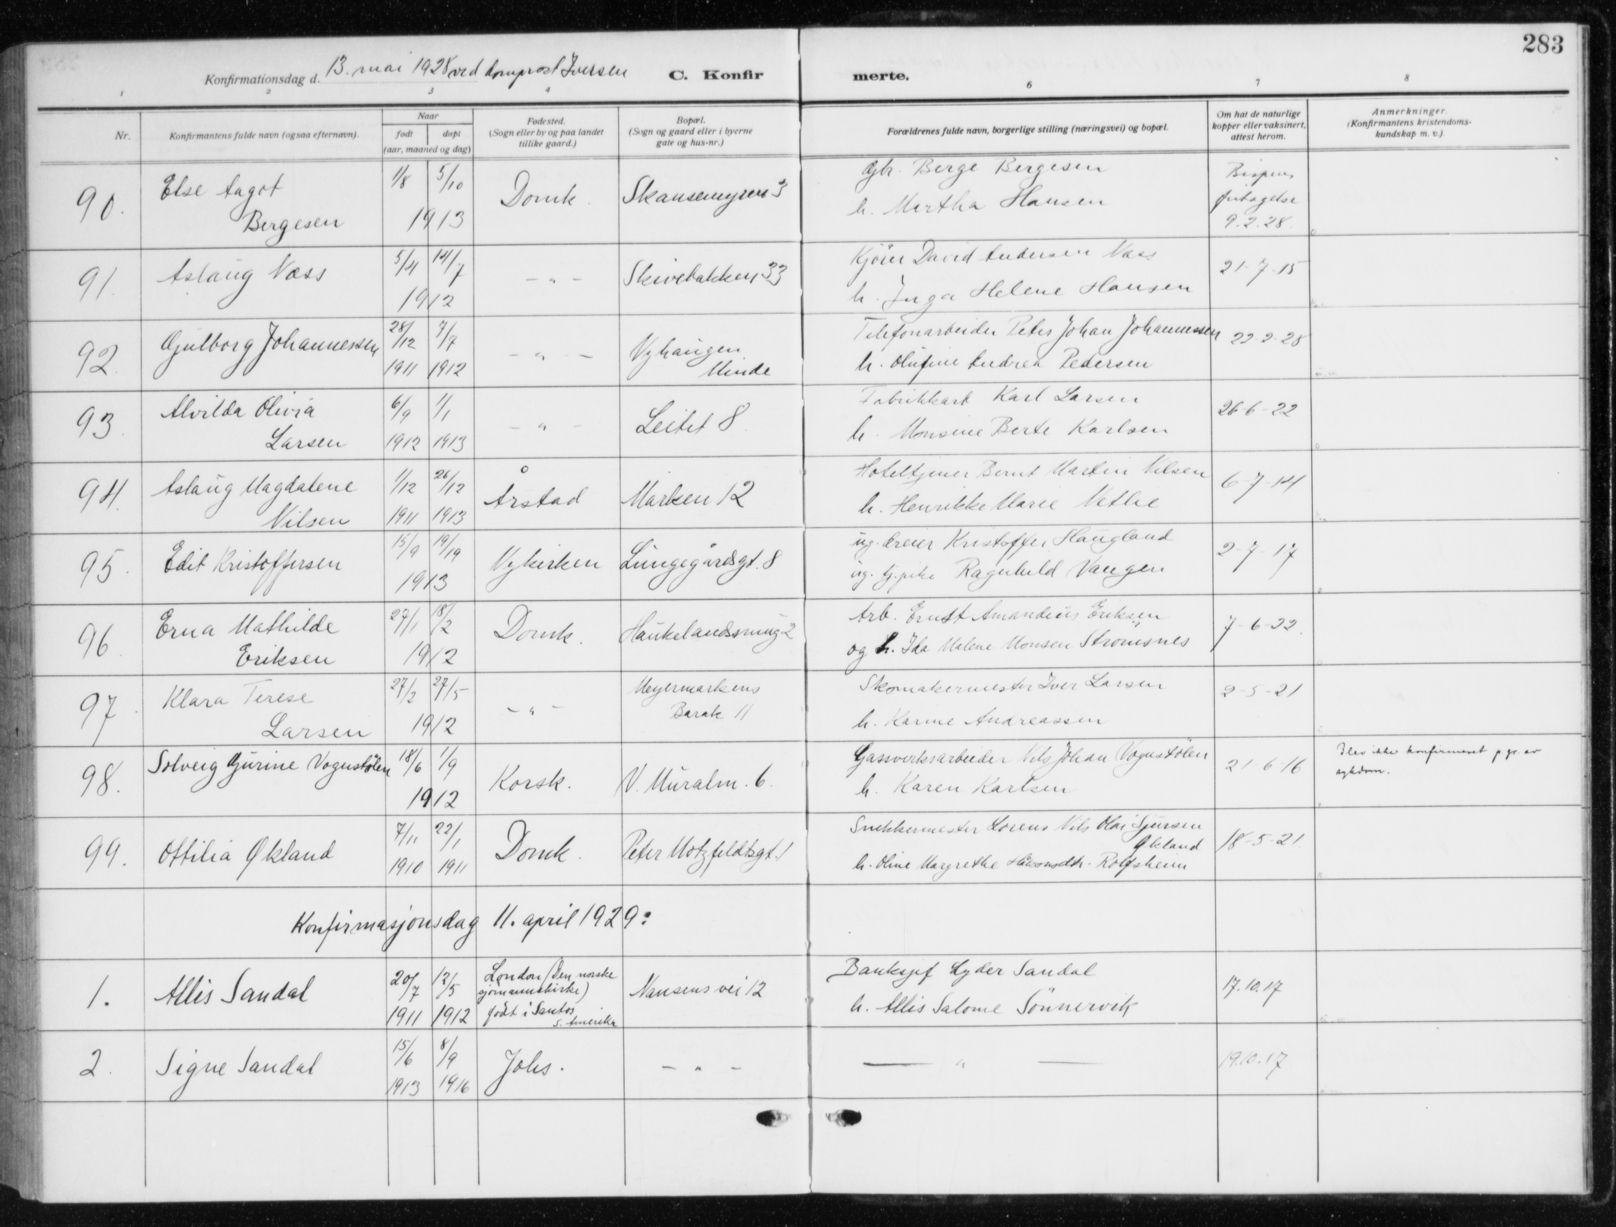 283
Konfirmationsdag d. 13. mai 1928 ved domprost Iversen C. Konfir merte.
1 2 3 4 6 7 8
Nr.
Konfirmantens fulde navn (ogsaa efternavn).
Naar
født døpt
(aar, maaned og dag)
Fødested.
(Sogn eller by og paa landet
tillike gaard.)
Bopæl.
(Sogn og gaard eller i byerne
gate og hus-nr.)
Forældrenes fulde navn, borgerlige stilling (næringsvei) og bopæl.
Om hat de naturlige
kopper eller vaksinert,
attest herom.
Anmerkninger.
(Konfirmantens kristendoms-
kundskap m. v.).
90. Else Aagot 1/8 5/10 Domk. Skansemyren 3 Gbr. Berge Bergesen Bispens
Bergesen 1913 h. Martha Hansen fritagelse
9.2.28.
91. Aslaug Næss 5/4 14/7 - " - Skivebakken 33 Kjører David Andersen Næss 21-7-15
1912 h. Inga Helene Hansen
92. Gjulborg Johannessen 28/12 7/7 - " - Nyhaugen Telefonarbeider Peter Johan Johannessen 22-2-28
1911 1912 Minde h. Olufine Andrea Pedersen
93. Alvilda Olivia 6/9 1/1 - " - Leitet 8. Fabrikkarb. Karl Larsen 26-6-22
Larsen 1912 1913 h. Monsine Berte Karlsen
94. Aslaug Magdalene 1/12 26/12 Årstad Marken 12 Hoteltjener Bernt Martin Nilsen 6-7-14
Nilsen 1911 1913 h. Henrikke Marie
95. Edit Kristoffersen 15/9 19/19 Nykirken Lungegårdsgt. 8 ug. Kristoffer Haugland 2-7-17
1913 ug. tj.pike Ragnhild Vangen
96. Erna Mathilde 27/1 18/2 Domk. Haukelandssmug 2 Arb. Ernst Amandeus Eriksen 7-6-22.
Eriksen 1912 og h. Ida Malene Monsen Strømsnes
97. Klara Terese 27/2 27/5 - " - Meyermarkens Skomakermester Iver Larsen 2-5-21
Larsen 1912 Barak 11 h. Karine Andreassen
98. Solveig Gurine Vognstølen 18/6 1/9 Korsk. N. Muralm. 6. Gassverksarbeider Nils Johan Vognstølen 21-6-16 Blev ikke konfirmeret p.gr. av
1912 h. Karen Karlsen sykdom.
99. Ottilia Økland 7/11 22/1 Domk. Peter Motzfeldtsgt. 1 Snekkermester Lorens Nils Olai Sjursen 18-5-21
Økland
1910 1911 h. Oline Margrethe Rolfsheim
Konfirmasjonsdag 11. april 1929:
1. Allis Sandal 20/7 12/5 London (Den norske Nansens vei 12 Banksjef Lyder Sandal 17.10.17
sjømannskirke)
1911 1912 født i Santos h. Allis Salome Sønnervik
S. Amerika
2. Signe Sandal 15/6 8/9 Johs. - " - — " — 19.10.17
1913 1916